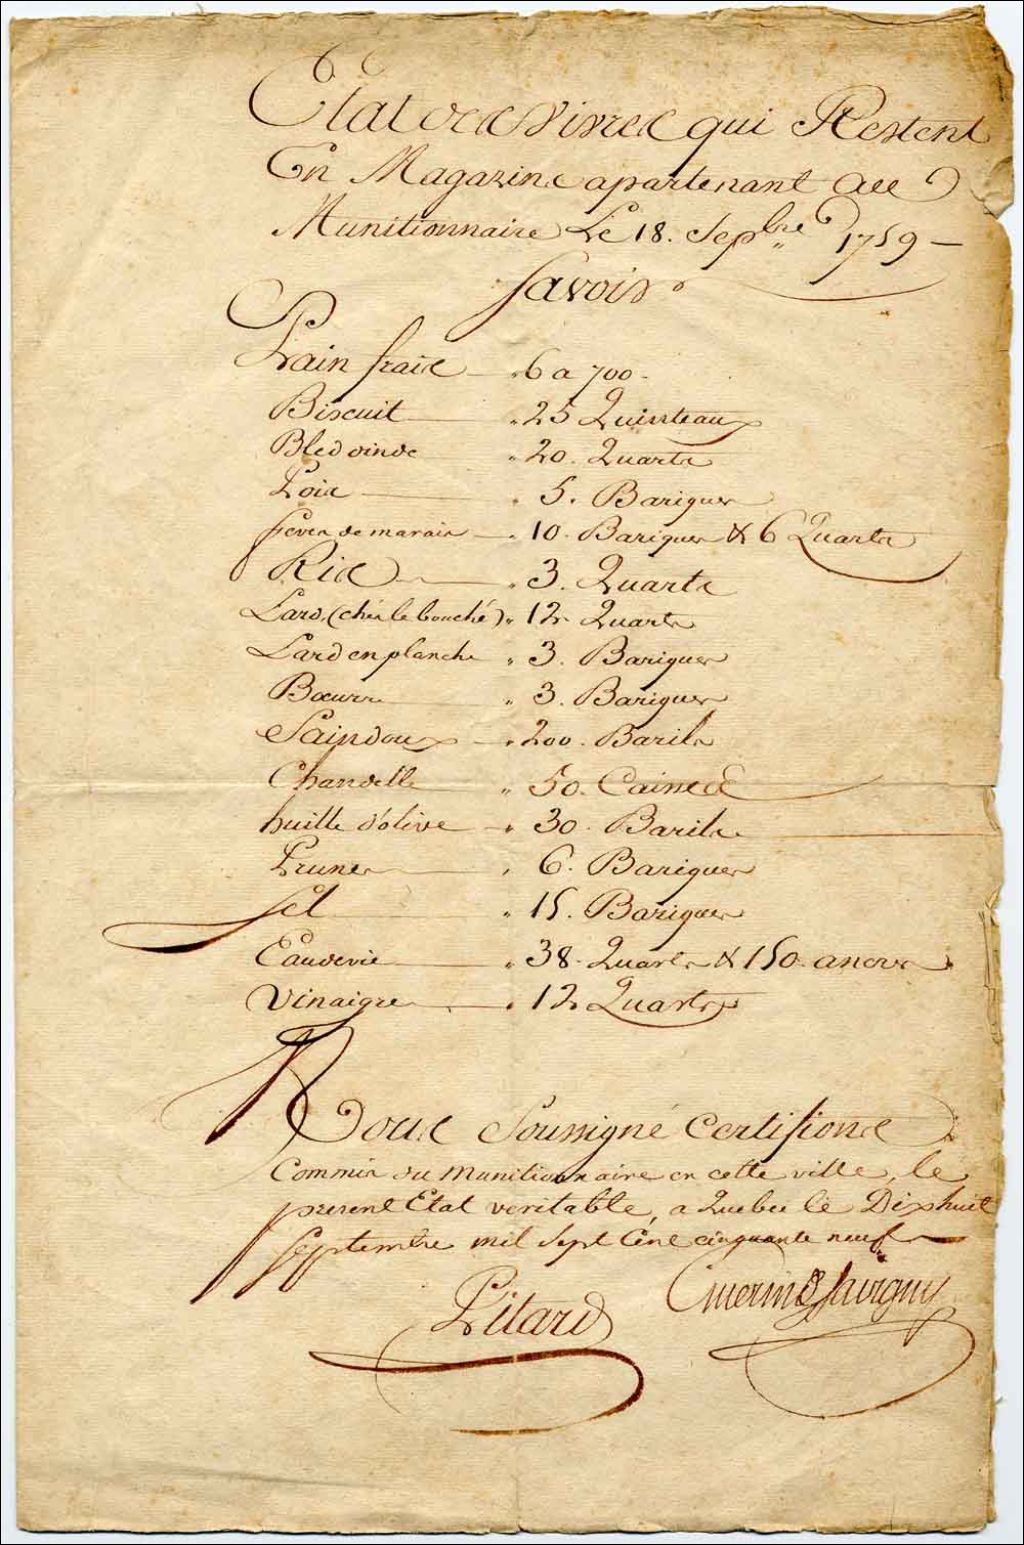 Etat des Vivres qui Restent
En Magazin apartenant au
Munitionnaire Le 18. Sepbre 1759 –
Savoir
Pain frais 6 a 700.
Biscuit 25 Quinteaux
Bled dinde 20. Quarts
Pois 5. Bariques
feves de marais 10. Bariques & 6 Quarts
Ris 3. Quarts
Lard (chés le bouché) 12. Quarts
Lard en planche 3. Bariques
Bœurre 3. Bariques
Saindoux 200. Barils
Chandelle 50. Caisses
huille d'olive 30. Barils
Prunes 6. Bariques
sel 15. Bariques
Eaudevie 38. Quarts & 150. ancres
Vinaigre 12 Quarts
Nous Soussigné Certifions
Commis du munitionnaire en cette ville, le
present Etat veritable, a Quebec le Dixhuit
Septembre mil Sept Cent cinquante neuf
Pitard Guerin D Savigny